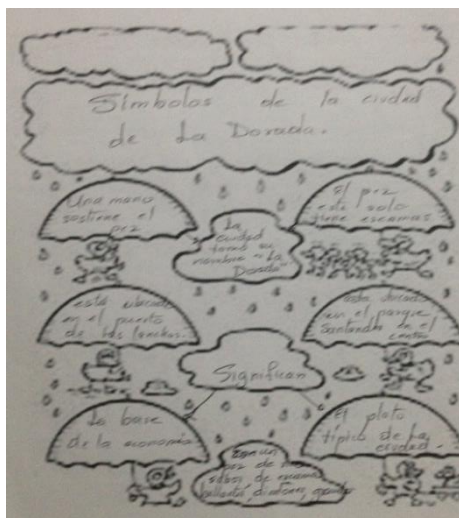 Símbolos de la ciudad
de La Dorada.
Una mano
sostiene el
pez
El pez
está solo
tiene escamas
La
ciudad
tomó su
nombre "La
Dorada"
está ubicado
en el puerto
de las lanchas
está ubicado
en el parque
Santander en el
centro
Significan
La base
de la economía
El plato
típico de la
ciudad.
pez de